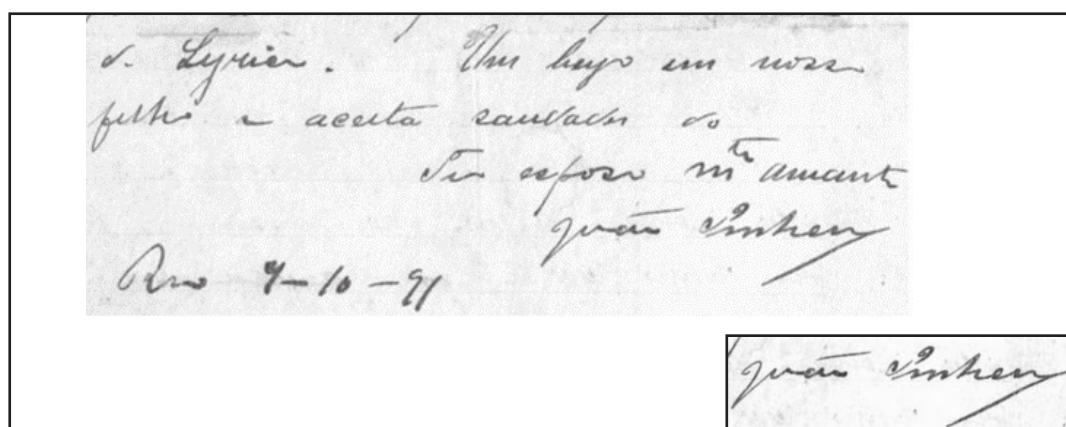 d. Lyrica. Um beijo em nosso
filho e aceita saudades do
Teu esposo mto amante
João Pinheiro
Rio 9-10-91
João Pinheiro